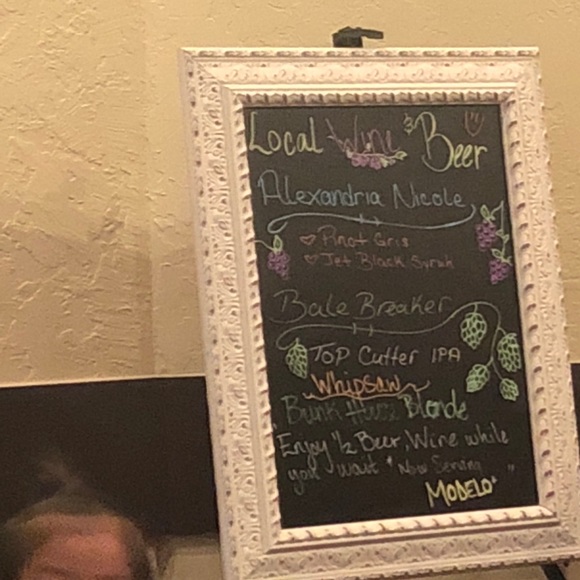 Local Wine & Beer
Alexandria Nicole
Pinot Gris
Jet Black Syrah
Bale Breaker
Top Cutter IPA
Whipsaw
Bunk House Blonde
Enjoy 1/2 Beer, Wine while
you wait * Now Serving "
MODELO"